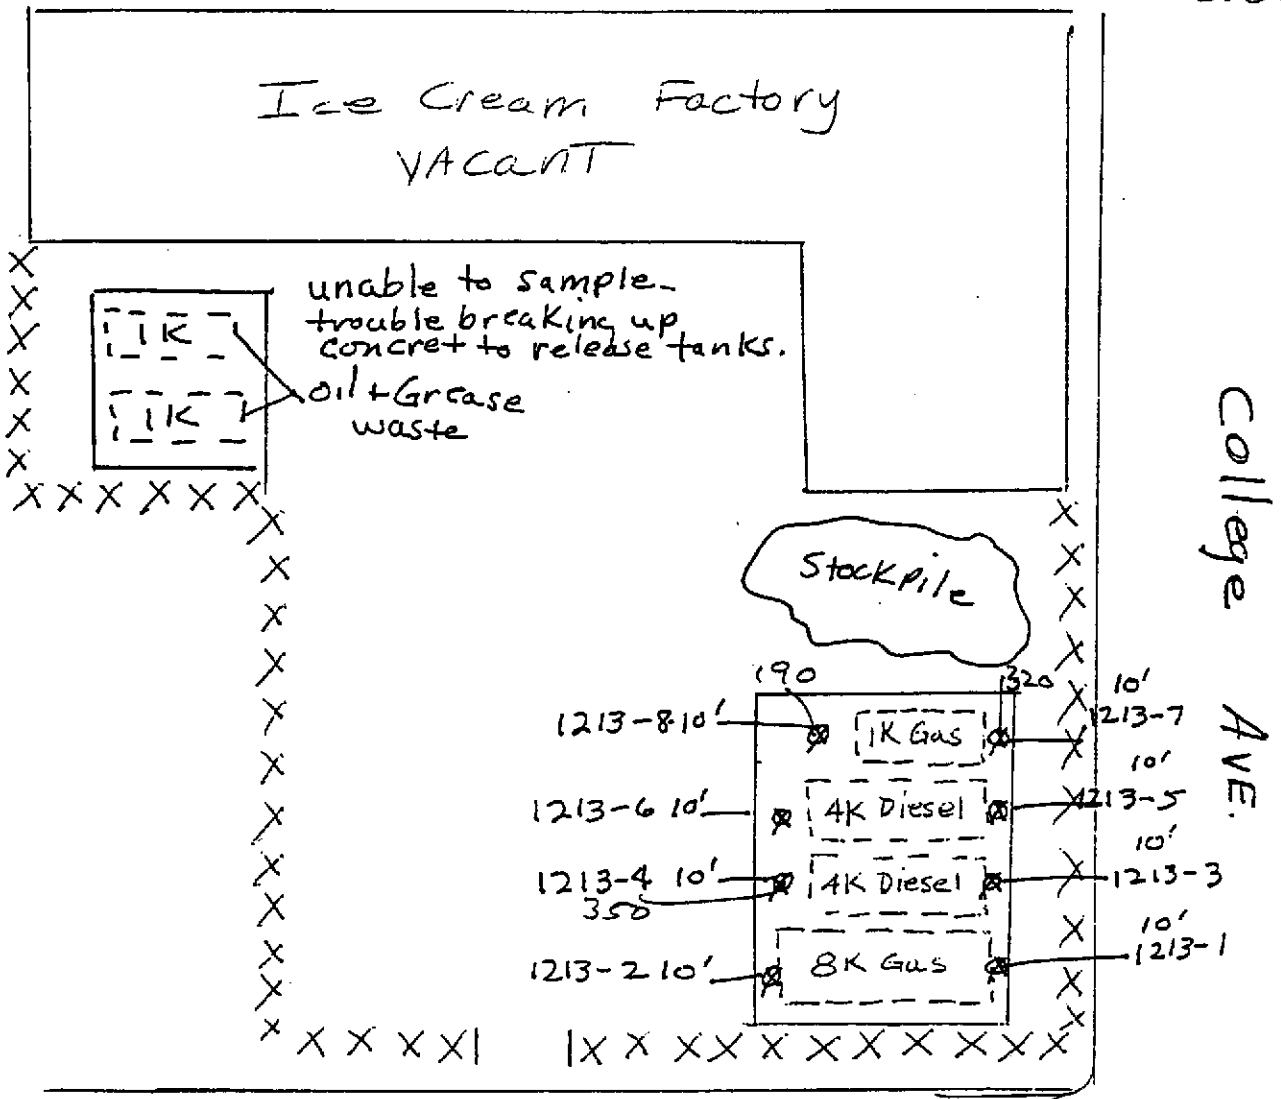 Ice Cream Factory
VAcanT
unable to sample-
trouble breaking up
concret to release tanks.
1K
1K
oil + Grease
waste
College AVE.
Stockpile
190
320
1213-8 10'
1K Gas
10'
1213-7
1213-6 10'
4K Diesel
10'
1213-5
1213-4 10'
350
4K Diesel
10'
1213-3
1213-2 10'
8K Gas
10'
1213-1